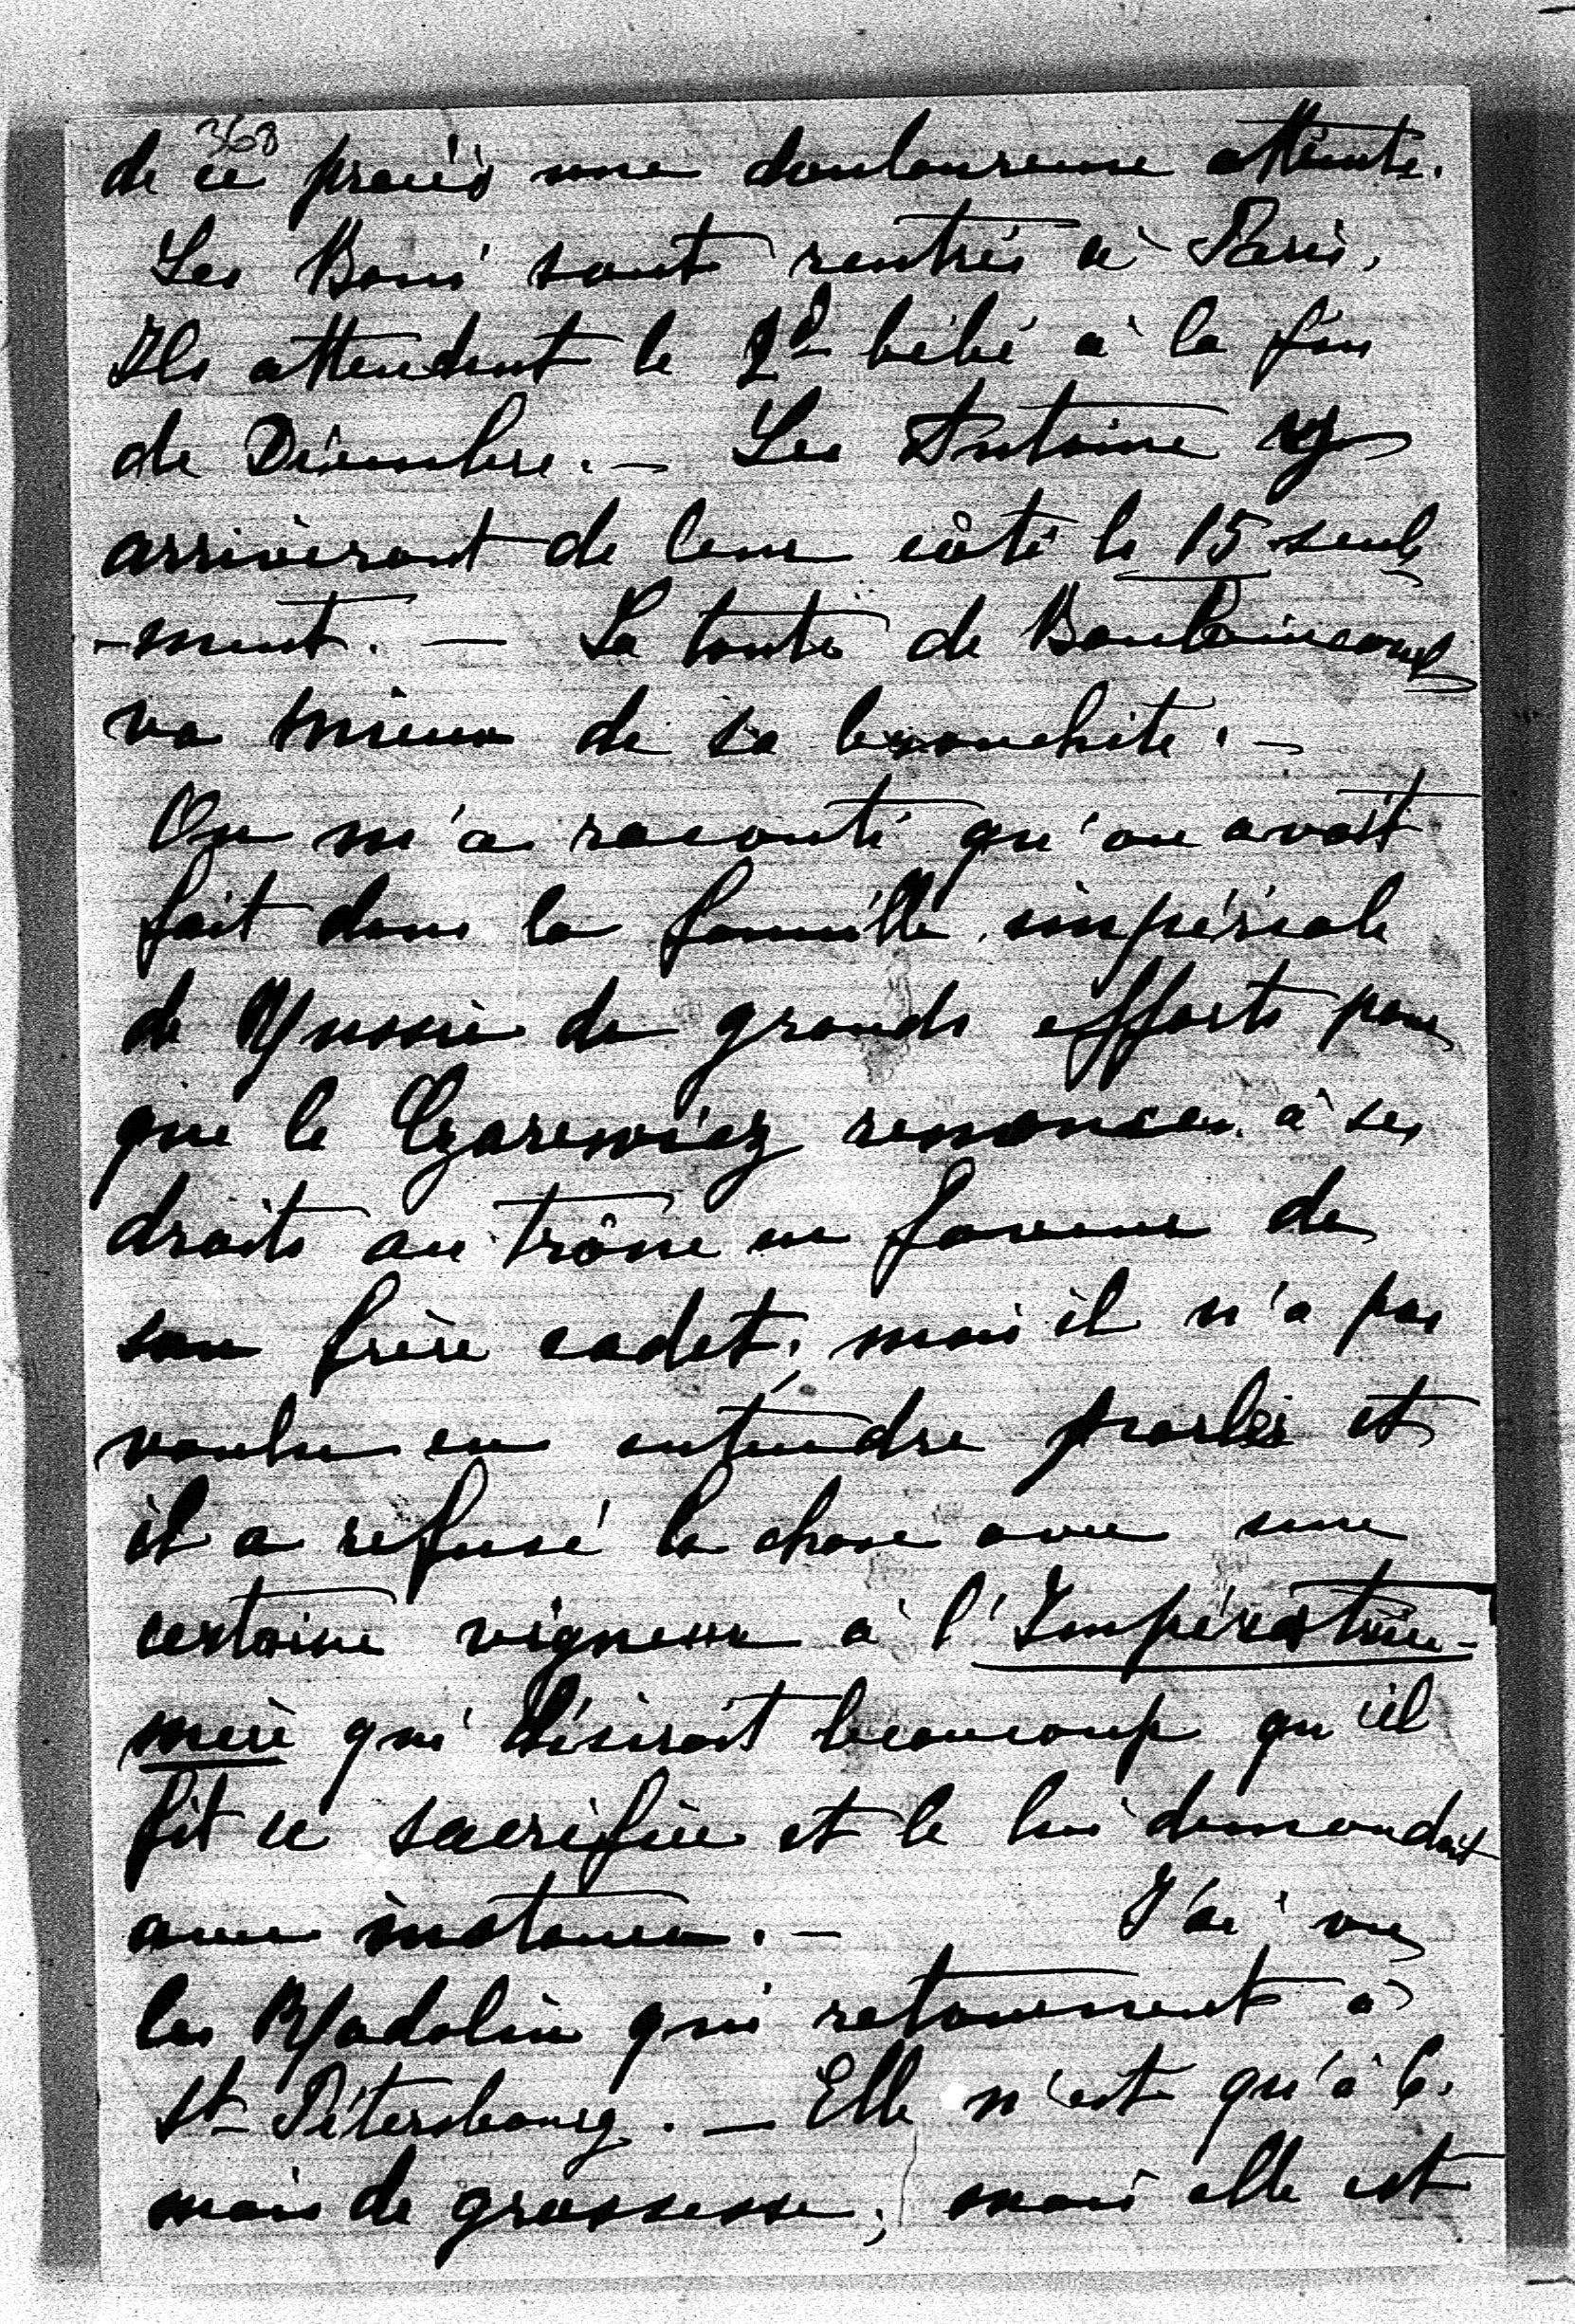 368
de ce procès une douloureuse atteinte.
Les Boni sont rentrés à Paris.
Ils attendent le 2d bébé à la fin
de Décembre. — Les Antoine y
arriveront de leur côté le 15 seule
-ment. — La tante de
va mieux de sa bronchite. —
On m'a raconté qu'on avait
fait dans la famille impériale
de Russie de grands efforts pour
que le Czarewicz renonce à ses
droits au trône en faveur de
son frère cadet, mais il n'a pas
voulu en entendre parler et
il a refusé la chose avec une
certaine vigueur à l'Impératrice-
mère qui désirait beaucoup qu'il
fit ce sacrifice et le lui demandait
avec instance. — J'ai vu
les Radolin qui retournent à
St-Pétersbourg. — Elle n'est qu'à 6.
mois de grossesse, mais elle est